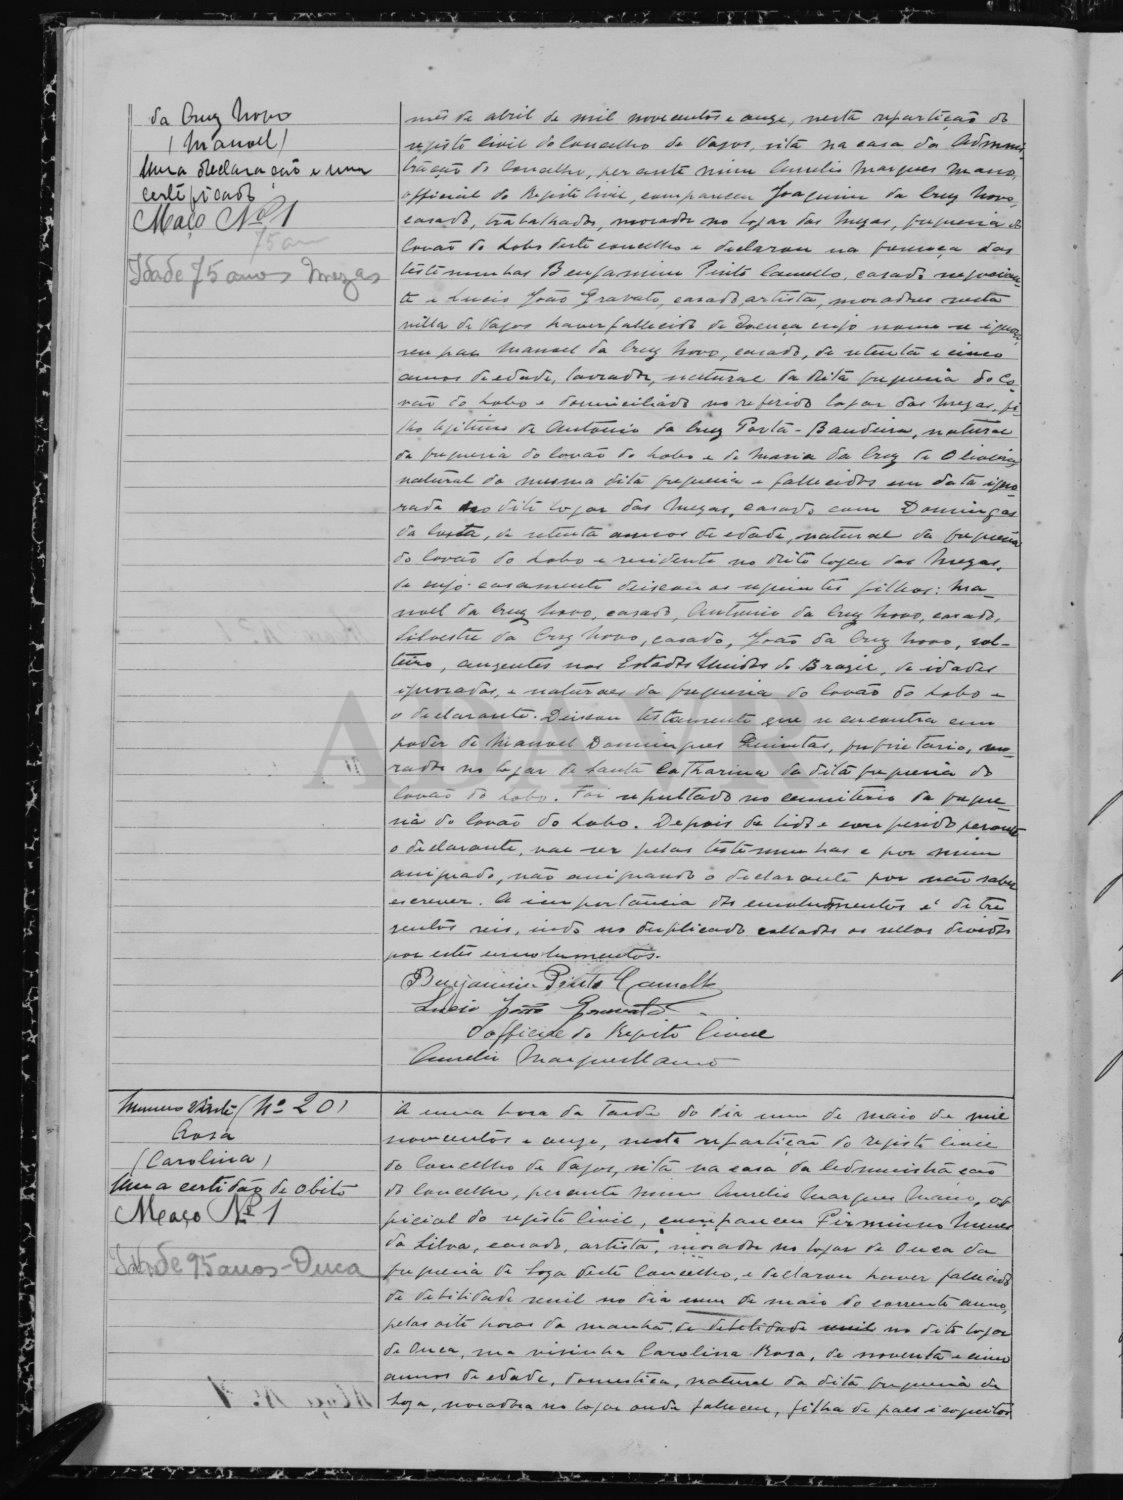 da Cruz Novo
(Manoel)
Uma declaração e um
certificado
Maço Nº 1
75 an
Idade 75 annos Mezas
mês de abril de mil novecentos e onze, nesta repartição do
registo civil do Concelho de Vagos, sita na casa da Adminis
tração do Concelho, perante mim Aurelio Marques Mano,
official do Registo Civil, compareceu Joaquim da Cruz Novo,
casado, trabalhador, morador no logar das Mezas, freguesia do
Covão do Lobo deste concelho e declarou na presença das
testemunhas Benjamim Pinto Camello, casado negocian
te e Lucio João Gravato, casado artista, moradores nesta
villa de Vagos haver fallecido de doença cujo nome se ignora,
seu pae Manoel da Cruz Novo, casado, de setenta e cinco
annos de edade, lavrador, natural da dita freguesia do Co
vão do Lobo e domiciliado no referido logar das Mezas, fi
lho legitimo de Antonio da Cruz Porta-Bandeira, natural
da freguesia do Covão do Lobo e de Maria da Cruz de Oliveira
natural da mesma dita freguesia e fallecidos em data igno
rada no dito logar das Mezas, casado com Domingas
da Costa, de setenta annos de edade, natural da freguesia
do Covão do Lobo e residente no dito logar das Mezas,
de cujo casamento deixou os seguintes filhos: Ma-
noel da Cruz Novo, casado, Antonio da Cruz Novo, casado,
Silvestre da Cruz Novo, casado, João da Cruz Novo, sol-
teiro, auzentes nos Estados Unidos do Brazil, de idades
ignoradas, e naturaes da freguesia do Covão do Lobo e
o declarante. Deixou testamento que se encontra em
poder de Manoel Domingues Quintas, propriétario, mo-
rador no logar de Santa Catharina da dita freguesia do
Covão do Lobo. Foi sepultado no cemiterio da fregue-
sia do Covão do Lobo. Depois de lido e conferido perante
o declarante, vae ser pelas testemunhas e por mim
assignado, não assignando o declarante por não saber
escrever. A importancia dos emolumentos é de tre
sentos reis, indo no duplicado collados os sellos devidos
por estes emolumentos.
Benjamim Pinto Camello
Lucio João Gravato
O official do Registo Civil
Aurelio Marques Mano
Numero vinte (Nº 20)
Rosa
(Carolina)
Uma certidão de obito
Maço Nº 1
Idade 95 annos - Ouca
A uma hora da tarde do dia um de maio de mil
novecentos e onze, nesta repartição do registo civil
do Concelho de Vagos, sita na casa da Administração
do Concelho, perante mim Aurelio Marques Mano, of
ficial do registo civil, compareceu Firmino Nunes
da Silva, casado, artista, morador no logar de Ouca da
freguesia de Soza deste Concelho, e declarou haver fallecido
de debilidade senil no dia um de maio do corrente anno,
pelas oito horas da manhã de debilidade senil no dito logar
de Ouca, sua visinha Carolina Rosa, de noventa e cinco
annos de edade, domestica, natural da dita freguesia de
Soza, moradora no logar onde faleceu, filha de paes incognitos
ADAVR